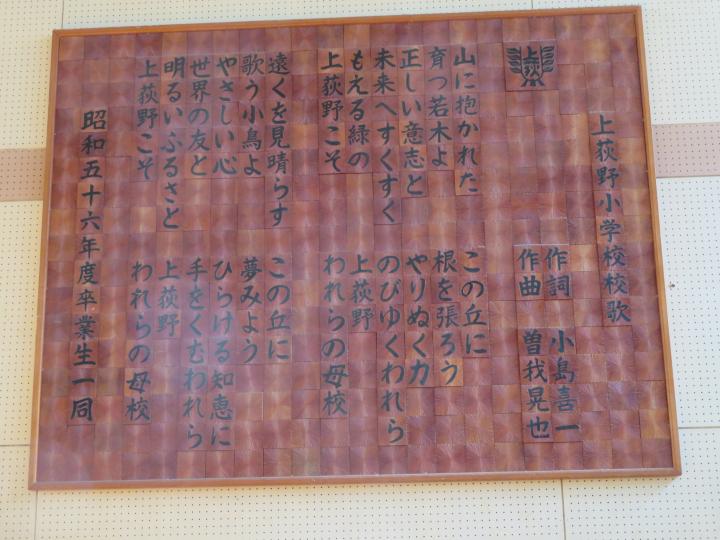 上荻
上荻野小学校校歌
作詞 小島喜一
作曲 曽我晃也
山に抱かれた この丘に
育つ若木よ 根を張ろう
正しい意志と やりぬく力
未来へすくすく のびゆくわれら
もえる緑の 上荻野
上荻野こそ われらの母校
遠くを見晴らす この丘に
歌う小鳥よ 夢みよう
やさしい心 ひらける知恵に
世界の友と 手をくむわれら
明るいふるさと 上荻野
上荻野こそ われらの母校
昭和五十六年度卒業生一同